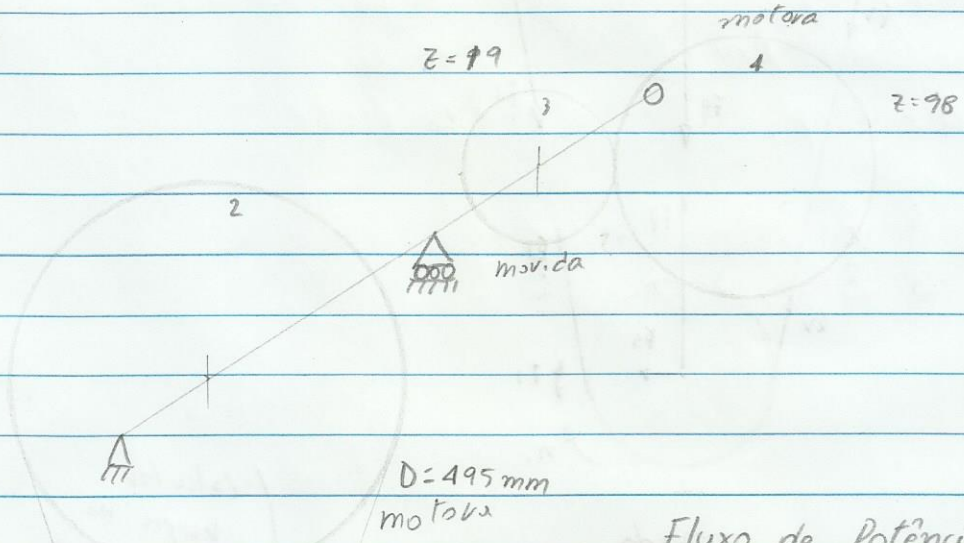 motora
Z = 19
4
3
Z = 98
2
movida
D = 495 mm
motora
Fluxo de Potênc